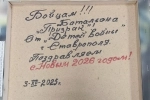 Бойцам!!!
Батальона
"Призрак"
От "Детей войны"
г. Ставрополя.
Поздравляем
с Новым 2026 годом!
5-XII-2025г.